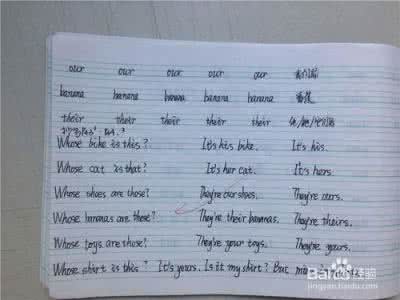 our our our our our 我们的
banana banana banana banana banana 香蕉
their their their their their 他/她/它们的
Whose bike is this? It's his bike. It's his.
Whose cat is that? It's her cat. It's hers.
Whose shoes are those? They're our shoes. They're ours.
Whose bananas are these? They're their bananas. They're theirs.
Whose toys are those? They're your toys. They're yours.
Whose shirt is this? It's yours. Is it my shirt? But
Bai 经验
jingyan.baidu.com